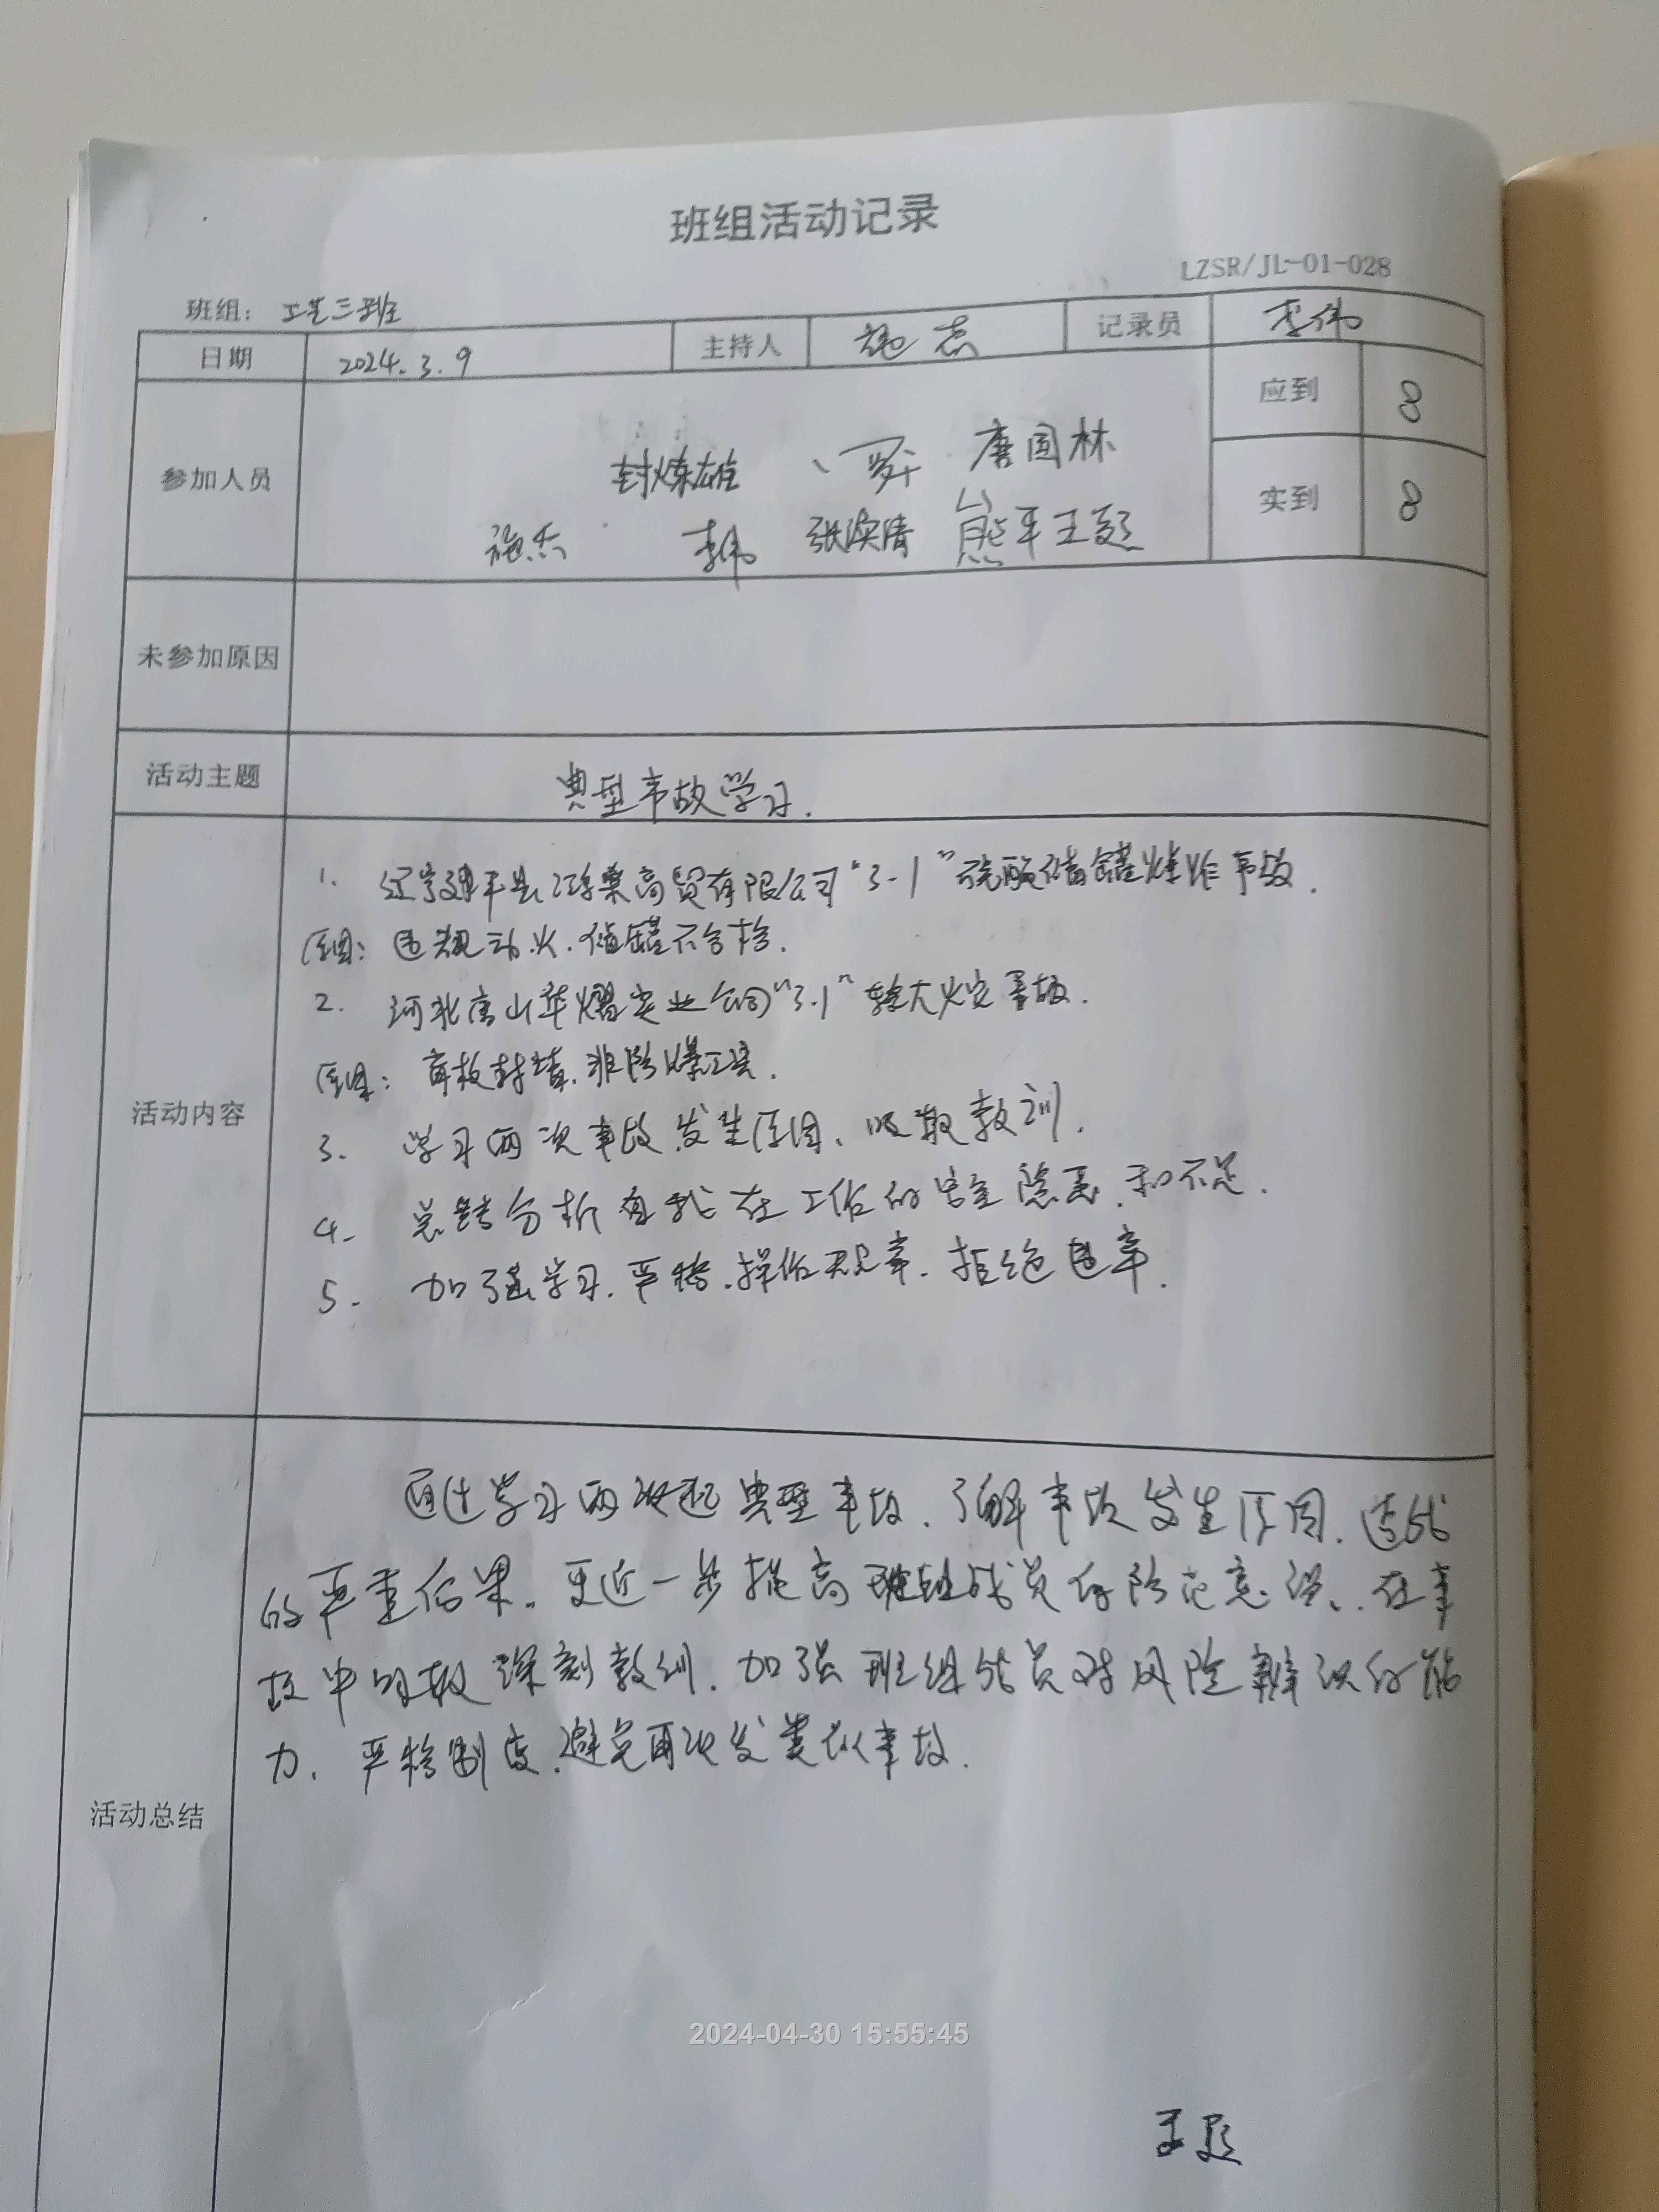 班组活动记录
LZSR/JL-01-028
班组: 工艺三班
日期 2024.3.9 主持人 施杰 记录员 李伟
参加人员 封炼雄 罗 唐国林 应到 8
施杰 李伟 张 熊平 王 实到 8
未参加原因
活动主题 典型事故学习.
活动内容
1. 辽宁建平县 商贸有限公司"3-1"硫酸储罐爆炸事故.
原因: 违规动火. 储罐不合格.
2. 河北唐山华熠实业公司"3.1"较大火灾事故.
原因: 盲板封堵. 非防爆工具.
3. 学习两次事故发生原因、吸取教训.
4. 总结分析自我在工作的安全隐患.和不足.
5. 加强学习.严格.操作规章.拒绝违章.
活动总结
通过学习两次起典型事故.了解事故发生原因.造成
的严重后果。更近一步提高班组成员的防范意识、.在事
故中吸取深刻教训.加强班组成员对风险辨识的能
力.严格制度.避免再次发类似事故.
2024-04-30 15:55:45
王